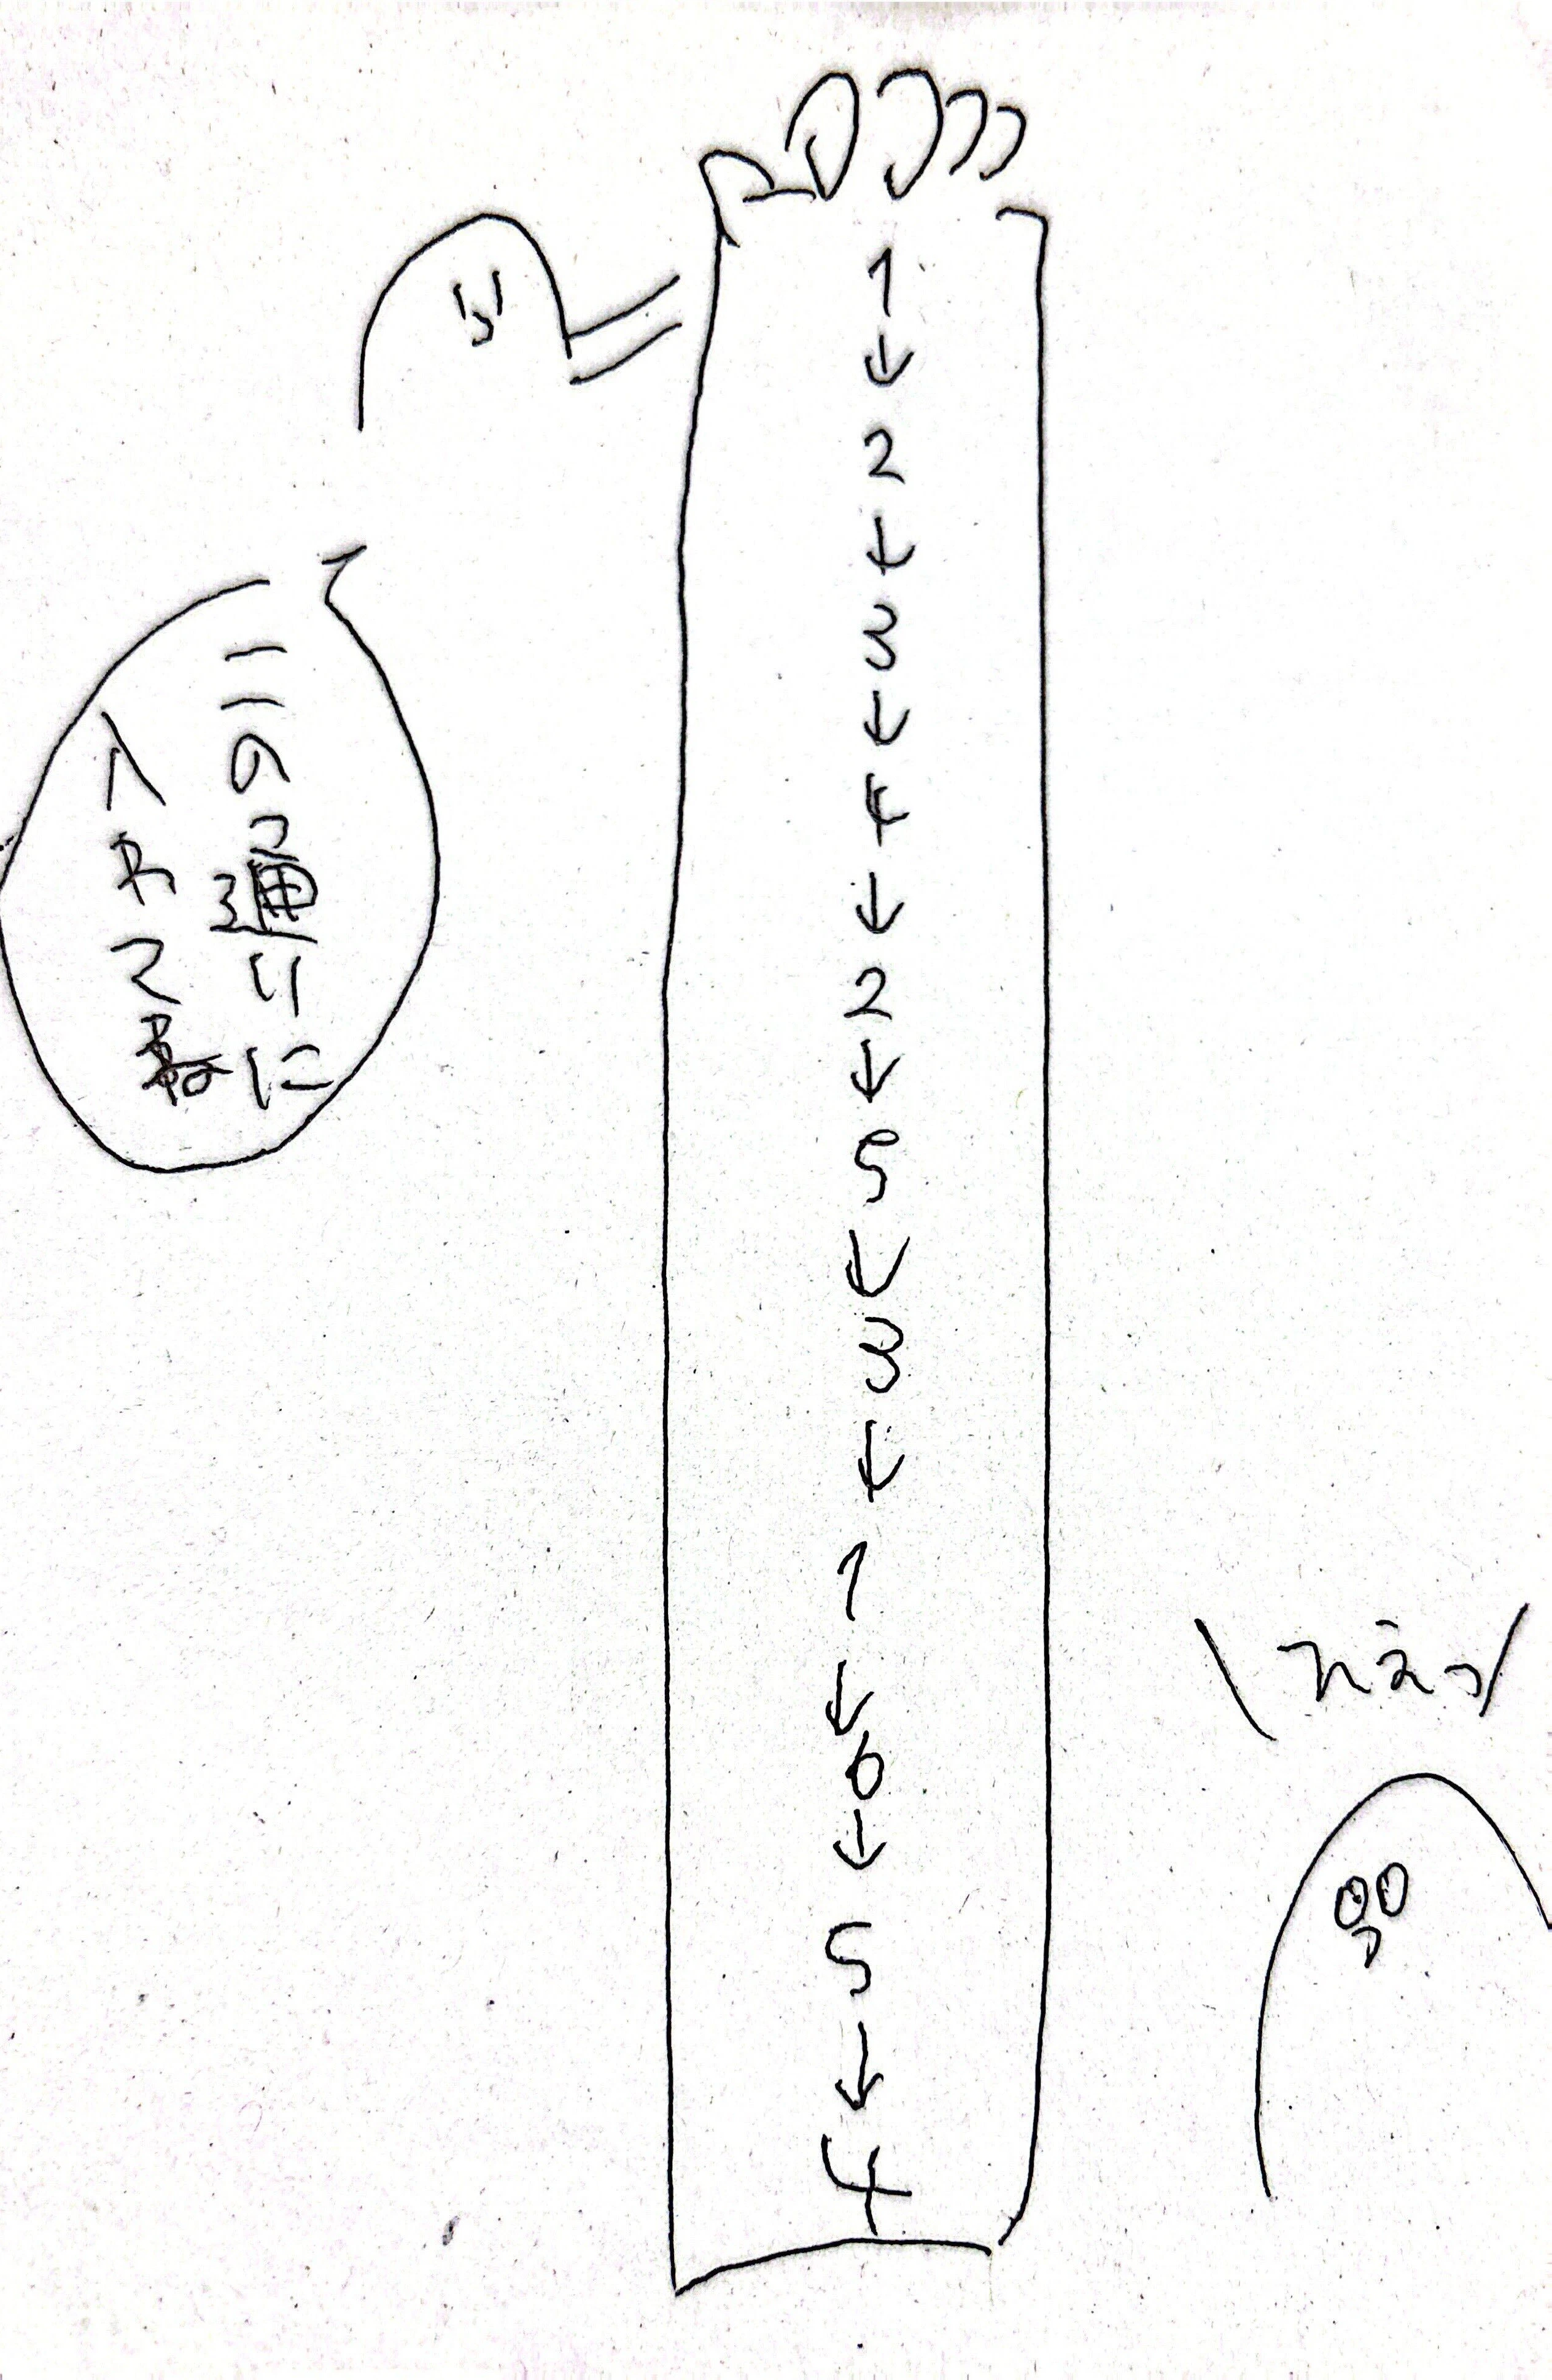 1
↓
2
↓
3
↓
4
↓
2
↓
5
↓
3
↓
1
↓
6
↓
5
↓
4
この通りに
入れてね
ええっ